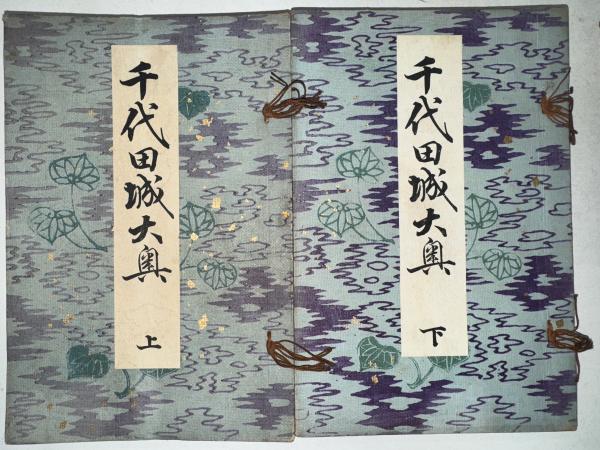 千代田城大奥 上
千代田城大奥 下